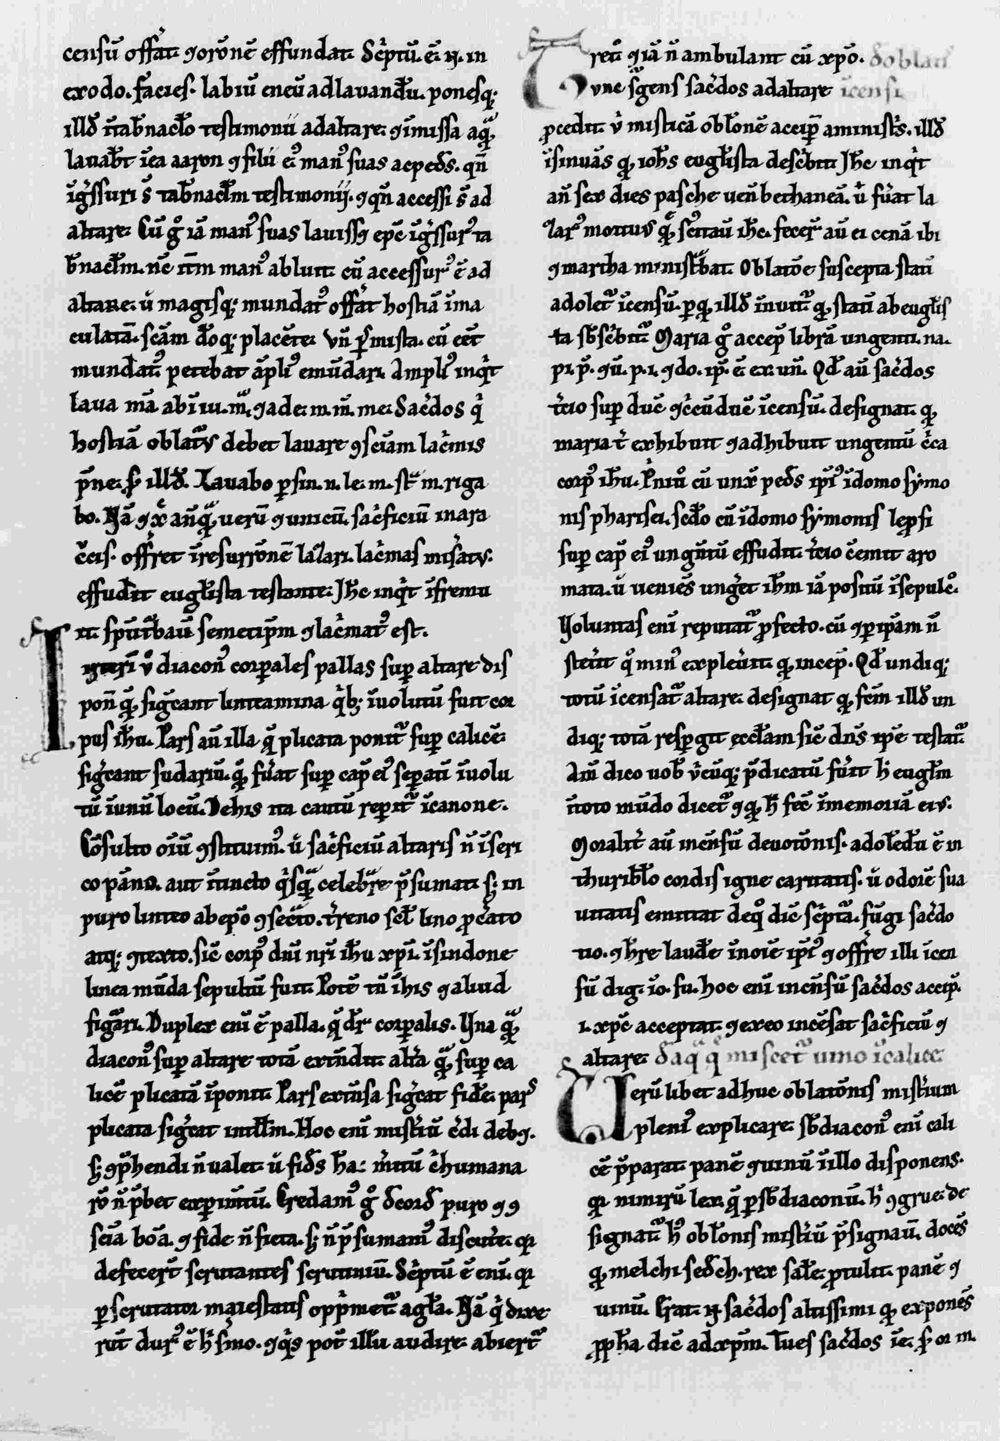 censū offāt. ⁊ orōnē effundat. Sc̄ptū. ē. n̄. in
exodo. facies. labiū eneū ad lauand̄u. ponesq;
illd̄ ī tab̄nac̄lo testimonii ad altare. ⁊ īmissa aq̄
lauab̄t īea aaron ⁊ filii ei᷒ man᷒ suas ac ped̄s. q̄n
īḡssuri s̄ tab̄nac̄lm testimonij. ⁊ q̄n accessi s̄ ad
altare. Cū g̊ iā man᷒ suas lauiss⁊ ep̄c īḡssur᷒ ta
b̄nac̄lm. n̄c it̄m man᷒ abluit. cū accessur᷒ ē ad
altare. ū magisq; mundat᷒ offāt hostiā īma
culatā. sc̄am d̄oq; placēte. Vn̄ p̄mista. cū eēt
mundat᷒ petebat āpli᷒ emūdari. Ampli᷒ inq̄t
laua mā ab iiu. m̄. ⁊ a de. m. m̄. me. Sac̄dos q̄
hostiā oblat᷒ debet lauare ⁊ sciam lac̄mis
p̄ne. s̄ illd̄. Lauabo p̱ sin. n. le. m. st̄ m. riga
bo. Nā ⁊ x̄ an̄q̄ uerū ⁊ unicū. sac̄ficiū in ara
c̄cis. offr̄et ī resurr̄onē laz̄ari. lac̄mas mis̄at᷒.
effud̄it euḡlista testante. Jh̄c inq̄t īfremu
it sp̄u t̄bau᷒ semetip̄m ⁊ lac̄mat᷒ est.
Interī v̊ diacon᷒ corpales pallas sup̱ altare dis
pon̄ q̄ sig̃cant linteamina q̄b; īuolutū fuit cor
pus ih̄u. Pars au᷒ illa q̄ plicata ponit᷑ sup̱ calicē.
sig̃cant sudariū. q̄ fūat sup̱ cap̄ ei᷒ sep̱atū īuolu
tū ī unū locū. De his ita cautū rep̱it᷑ īcanone.
Cōsulto oīū ⁊stituim᷒. ū sac̄ficiū altaris n̄ ī seri
co pāno. aut tincto q̄sq̄ celebr̄e p̄sumat. s; in
puro linteo ab ep̄o ⁊sec̄to. t̄reno scl̄ lino p̱c̄ato
atq; ⁊texto. sic̄ corp᷒ dn̄i nr̄i ih̄u xp̄i. ī sindone
linea mūda sepultū fuit. Pot̄ē tn̄ ī his ⁊ aliud
fig̃ari. Duplex eni ē palla. q̄ dr̄ corpalis. Una q̄
diacon᷒ sup̱ altare totā extn̄dit. alt̄a q̄ sup̱ ca
licē plicatā īponit. Pars extn̄sa sig̃cat fid̄e. pars
plicata sig̃cat intll̄m. Hoc eni mist̄iū c̄di debz.
s; ⁊p̄hendi n̄ ualet. ū fid̄s h̄a. m̄tū c̄ humana
rō n̄ p̄bet exp̱imtū. Credam᷒ g̊ d̄ cord̄ puro ⁊ ⁊
sciā boā. ⁊ fide n̄ ficta. s; n̄ p̄sumam᷒ discut̄e. q̄
defecer̄t scrutantes scrutiniū. Sc̄ptū ē eni. q̄
p̱scrutator maiestatis opp̄met᷑ a gl̄a. Nā q̄ dixe
rūt dur᷒ ē h̄ s̄mo. ⁊ q̄s pot̄ illū audire. abier̄t
retr̄. ⁊ iā n̄ ambulant cū xp̄o. d̄ oblat̄
Tunc s̄gens sac̄dos ad altare īcensi
p̱cedit. v̄ misticā obl̄onē accip̄ a minist̄s. illd̄
īsinuās q̄ ioh̄s euḡlista desc̄bit. Jh̄c inq̄t
an̄ sex dies pasche uen̄ bethaneā. ū fūat la
zar᷒ mortuus q̄ scitau᷒ ih̄c. fecer̄ au᷒ ei cenā ibi
⁊ martha minist̄bat. Oblatōe suscepta statī
adolet᷑ īcensū. p̱q̄ illd̄ īnuit᷑ q̄ statī ab euḡlis
ta sb̄sc̄bit᷑. Maria g̊ accep̄ librā ungenti. na.
pi. p̄. ⁊ ū. p. i. ⁊ do. ip̄. ē ex. un. Qd̄ au᷒ sac̄dos
t̄cio sup̱ duc̄ ⁊c̄cū duc̄ īcensū. designat. q̄
maria t̄ exhibuit ⁊ adhibuit ungentū c̄ca
corp᷒ ih̄u. Pmū cū unx̄ ped̄s ip̄i᷒ ī domo symo
nis pharisei. sc̄do cū ī domo symonis lep̱si
sup̱ cap̄ ei᷒ unḡntū effudit. t̄cio c̄emit aro
mata. ū ueniēs unḡet ih̄m iā positū ī sepulc̊.
Uoluntas eni reputat᷑ p̱ facto. cū ⁊ p̱ ip̄am n̄
stet̄it q̊ min᷒ expleūit. q̄ incep̄. Qd̄ undiq;
totū īcensat᷑ altare. designat q̄ fem̄ illd̄ un
diq; totā resp̱git ecc̄lam sic̄ dn̄s xp̄c testat᷑.
Am̄ dico uob̄ v̄cūq; p̄dicatū fūit h̄ euḡlm
ī toto mūdo dicet᷑ ⁊ q̄ h̄ fec̄ ī memoriā ei᷒.
Moralit̄ au᷒ incn̄sū deuotōnis. adold̄ū ē in
thuribl̄o cordis igne caritatis. ū odorē sua
uitatis emittat de q̊ dic̄ sc̄ptā. fūgi sac̄do
tio. ⁊ h̄re laud̄e ī noīe ip̄i᷒ ⁊ offr̄e illi icen
sū dig. io. su. Hoc eni incn̄sū sac̄dos accip̄.
i. xp̄c acceptat. ⁊ ex eo incēsat sac̄ficiū ⁊
altare. d̄ aq̄ q̄ miscet᷑ uino ī calice
Uerū libet adhuc oblatōnis mist̄ium
pleni᷒ explicare. sb̄diacon᷒ eni cali
cē p̄parat. panē ⁊ uinū ī illo disponens.
q̄ nimirū lex q̄ p̱ sb̄diaconū. h̄ ⁊grue de
signat᷑ h᷒ obl̄onis mist̄iū p̄signau᷒. docēs
q̄ melchisedch. rex sale. p̱tulit. panē ⁊
uinū. Erat. n̄ sac̄dos altissimi q̄ exponēs
pp̱ha dic̄ ad xp̄m. Tu es sac̄dos ī e. s̄ or m.